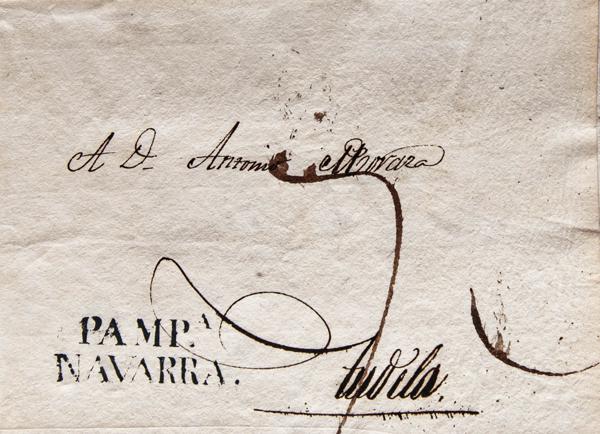 A D. Antonio
PAMP.A
NAVARRA.
tudela.